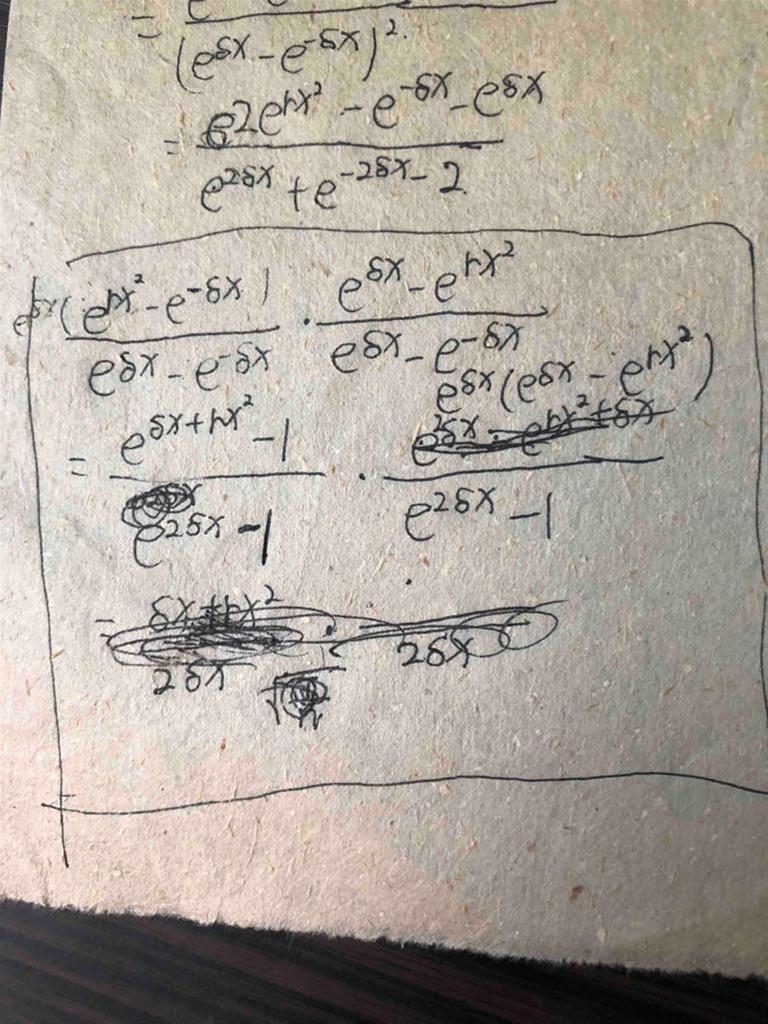 = (e^{δx} - e^{-δx})^2
= e2e^{rx^2} - e^{-δx} - e^{δx} / e^{2δx} + e^{-2δx} - 2
e^{δx}(e^{rx^2} - e^{-δx}) / e^{δx} - e^{-δx} · e^{δx} - e^{rx^2} / e^{δx} - e^{-δx}
= e^{δx+rx^2} - 1 / e^{2δx} - 1 · e^{δx}(e^{δx} - e^{rx^2}) / e^{2δx} - 1
= δx+rx^2 / 2δx · 2δx